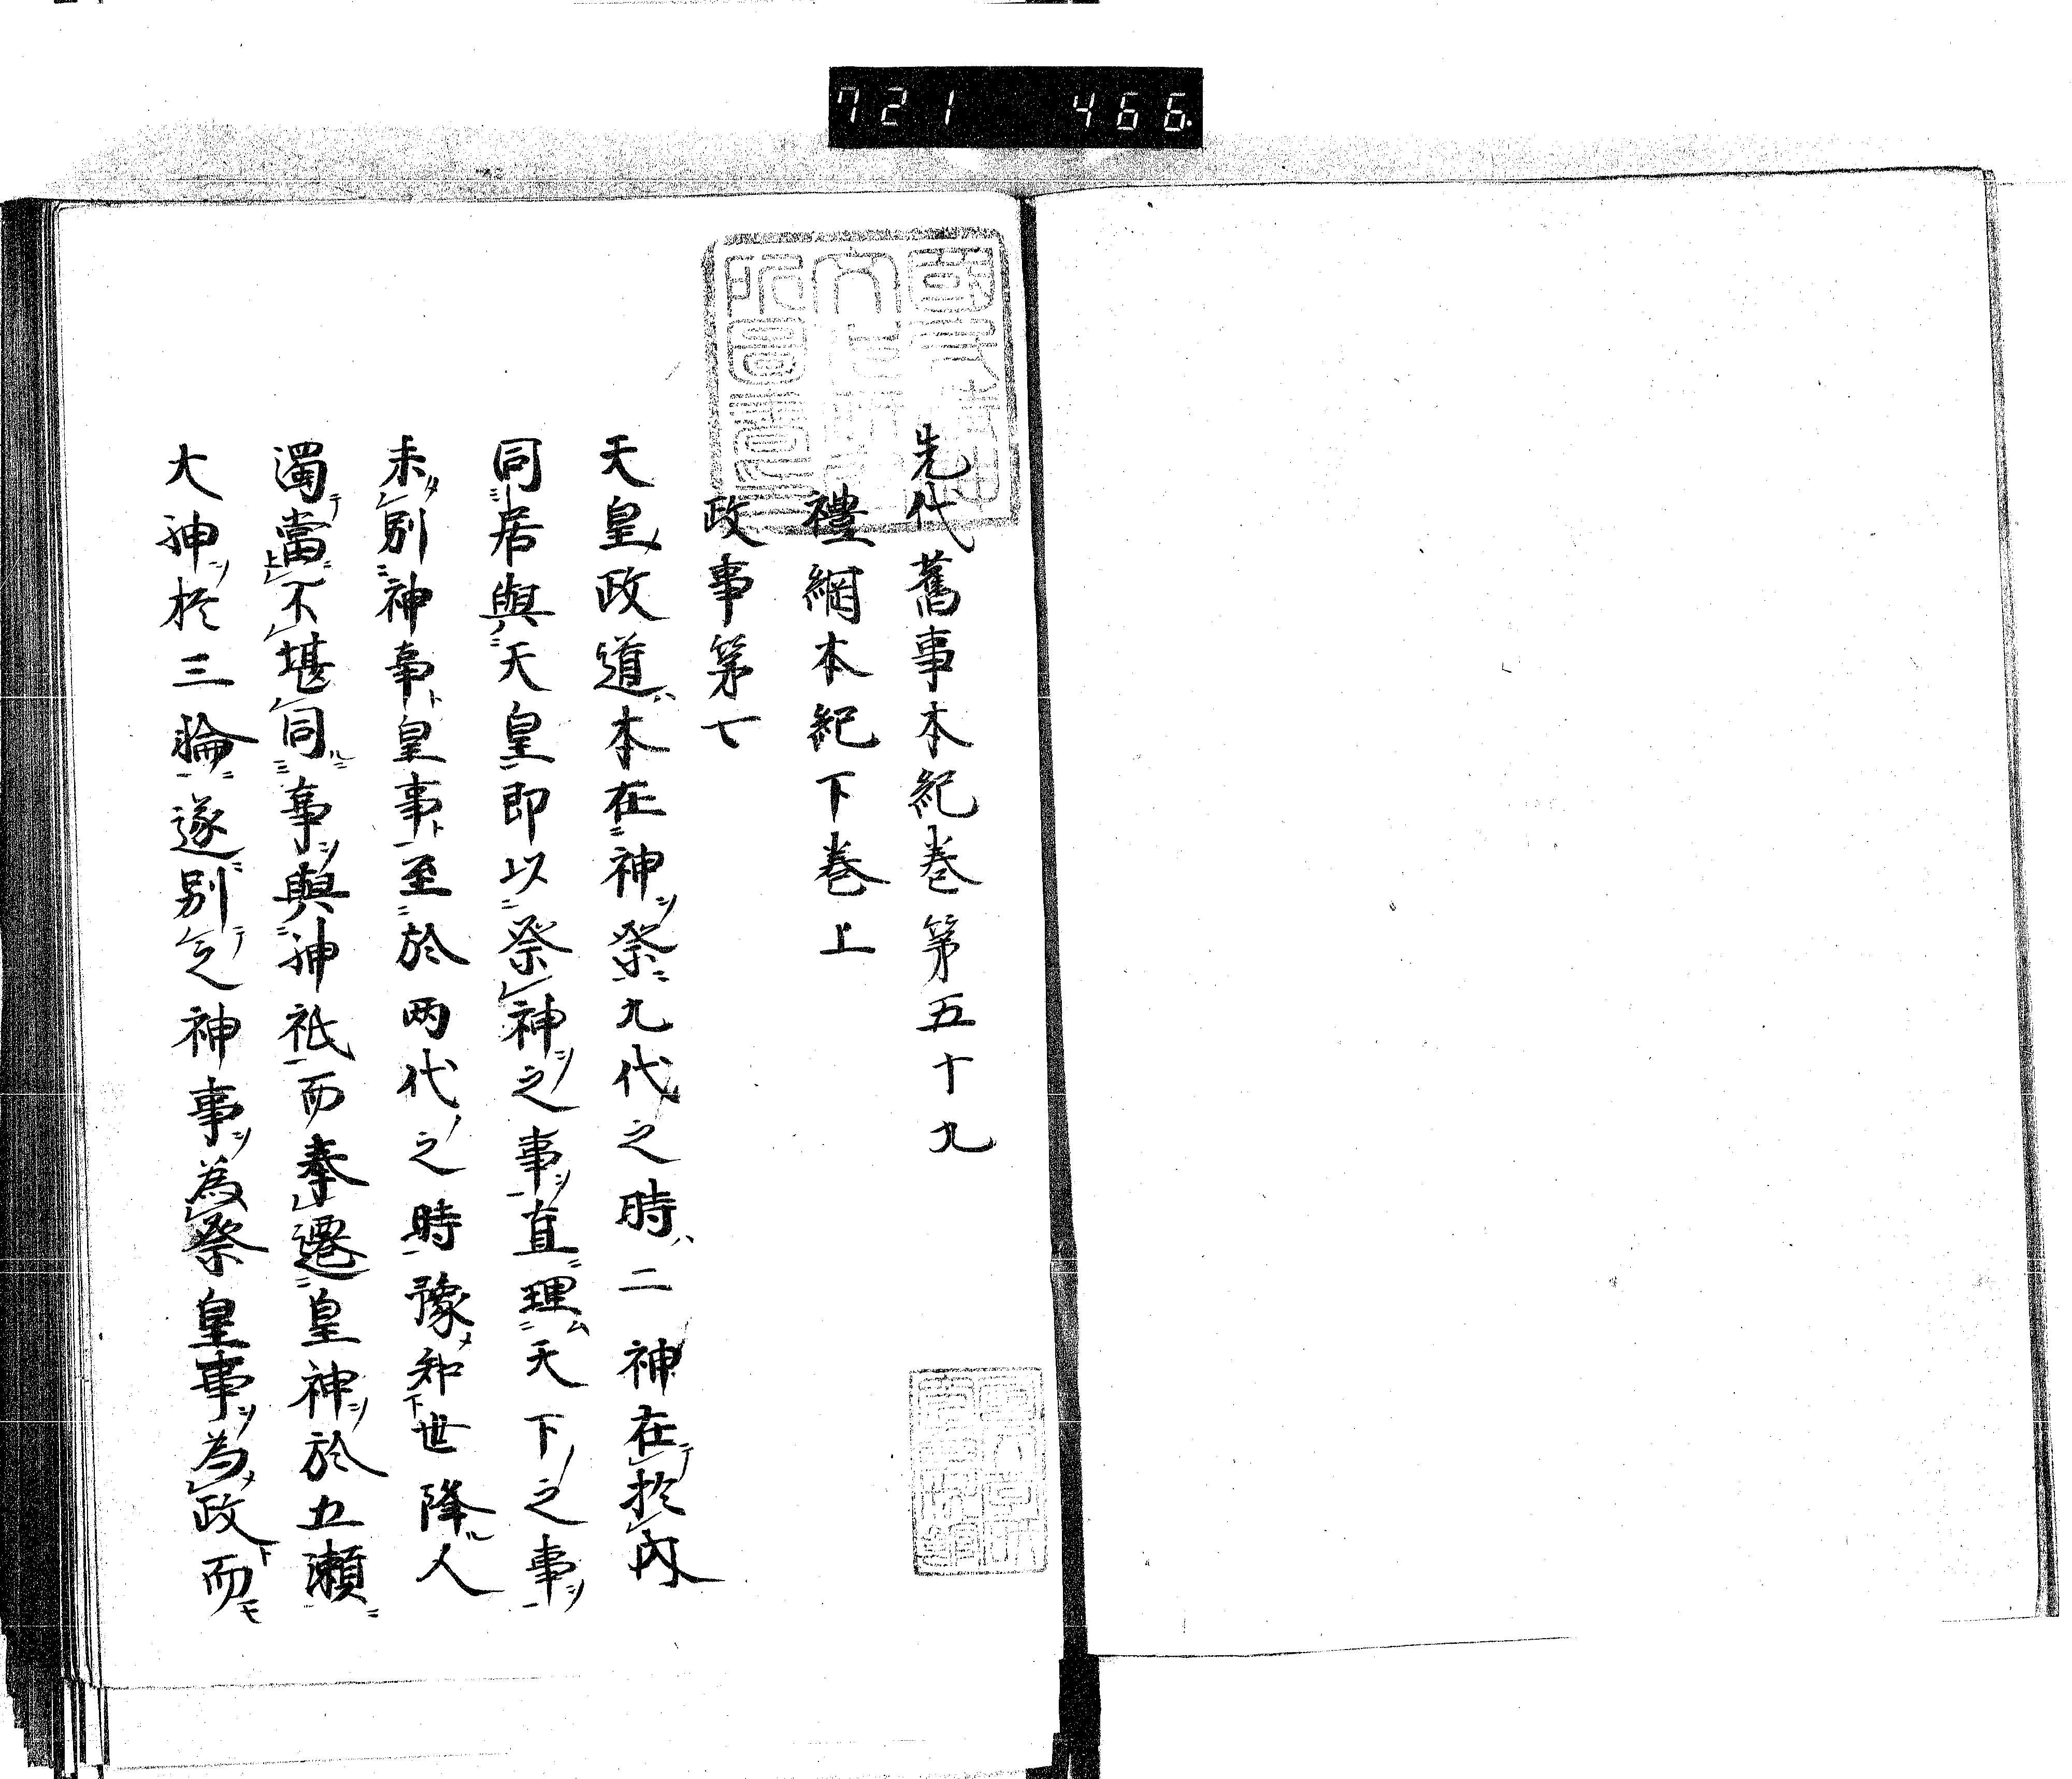 721 466
先代舊事本紀巻第五十九
禮綱本紀下巻上
政事第七
天皇政道本在神祭九代之時二神在於内
同居與天皇即以祭神之事直理天下之事
未別神事皇事至於两代之時豫知世降人
濁當不堪同事與神祇而奉遷皇神於五瀬
大神於三輪遂別定神事為祭皇事為政而